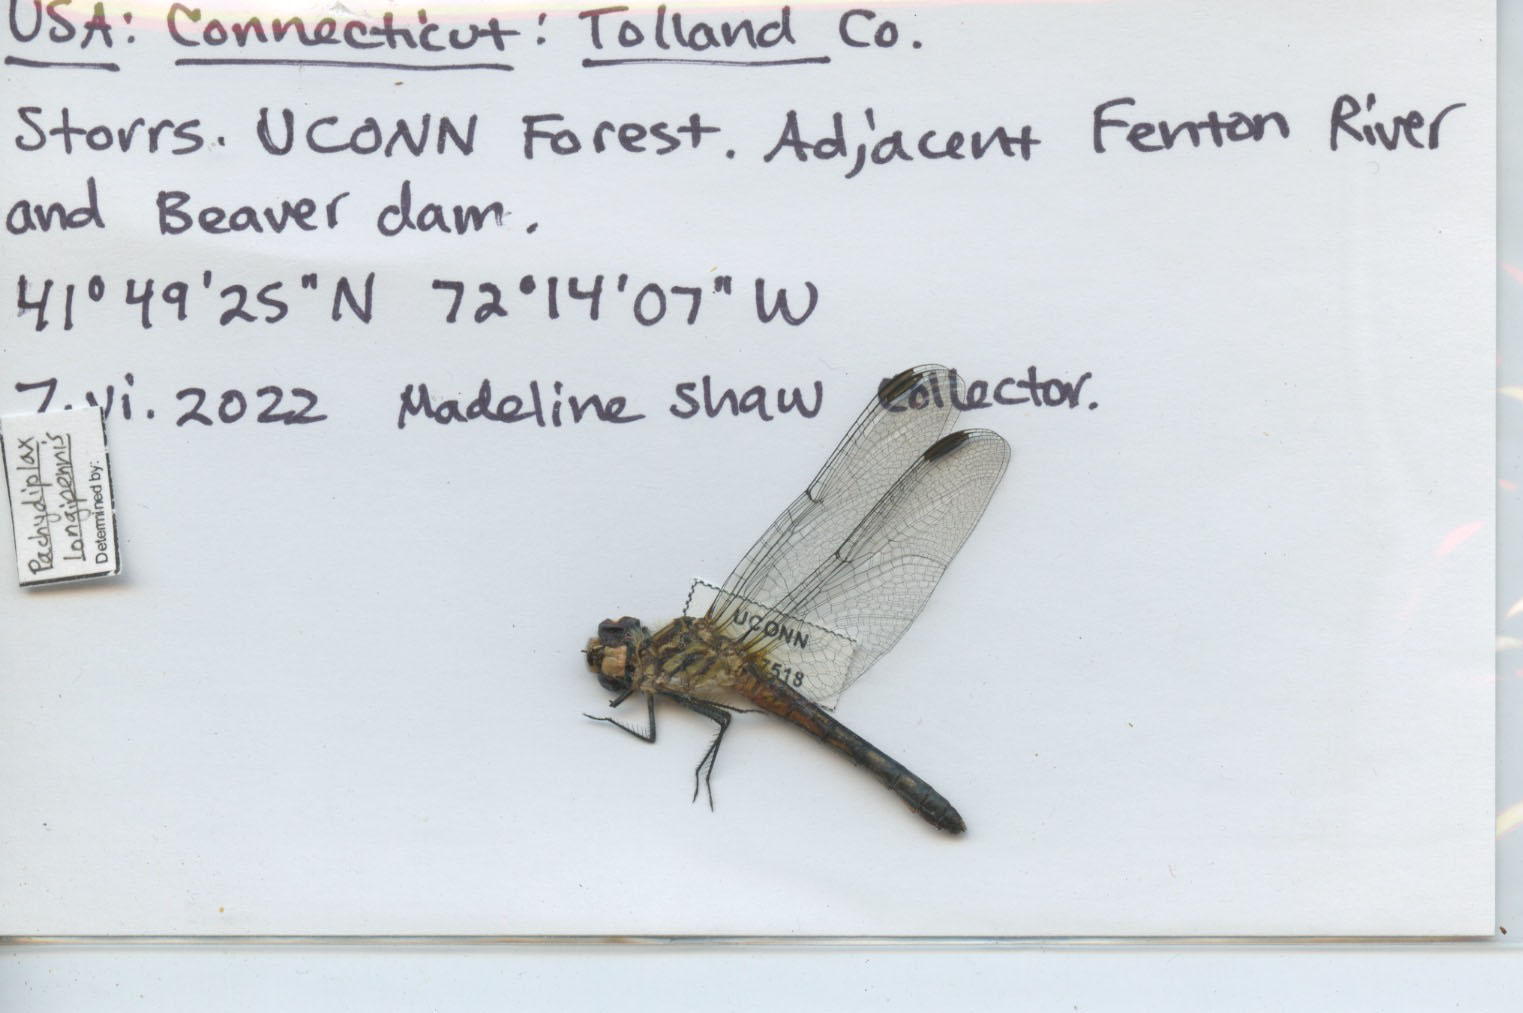 USA: Connecticut: Tolland Co.
Storrs. UCONN Forest. Adjacent Fenton River
and Beaver dam.
41°49'25"N 72°14'07"W
7.vi.2022 Madeline Shaw Collector.
Pachydiplax
longipennis
Determined by:
UCONN
7518